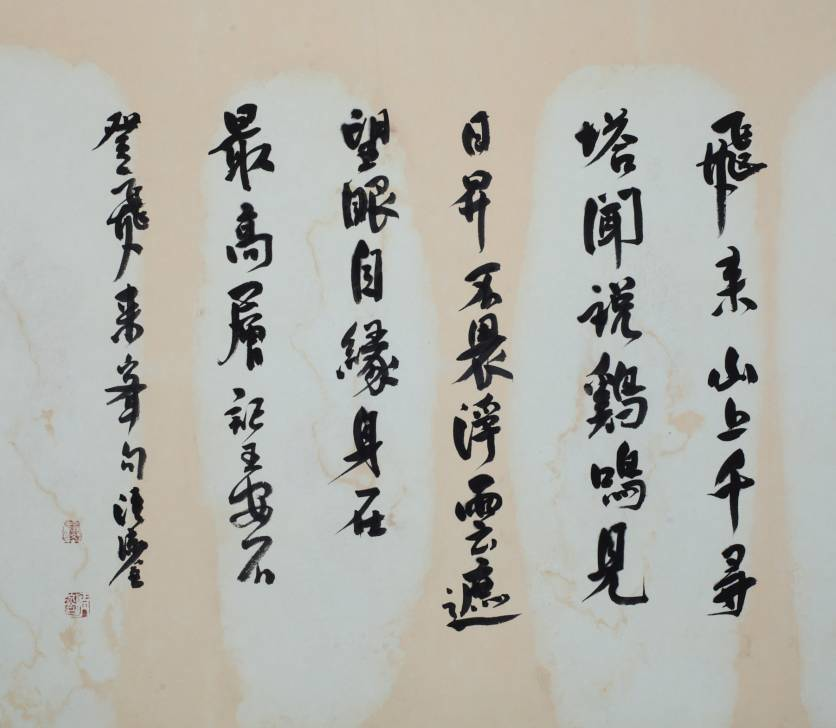 飛來山上千尋
塔聞説鷄鳴見
日昇不畏浮雲遮
望眼自緣身在
最高層記王安石
登飛來峯句